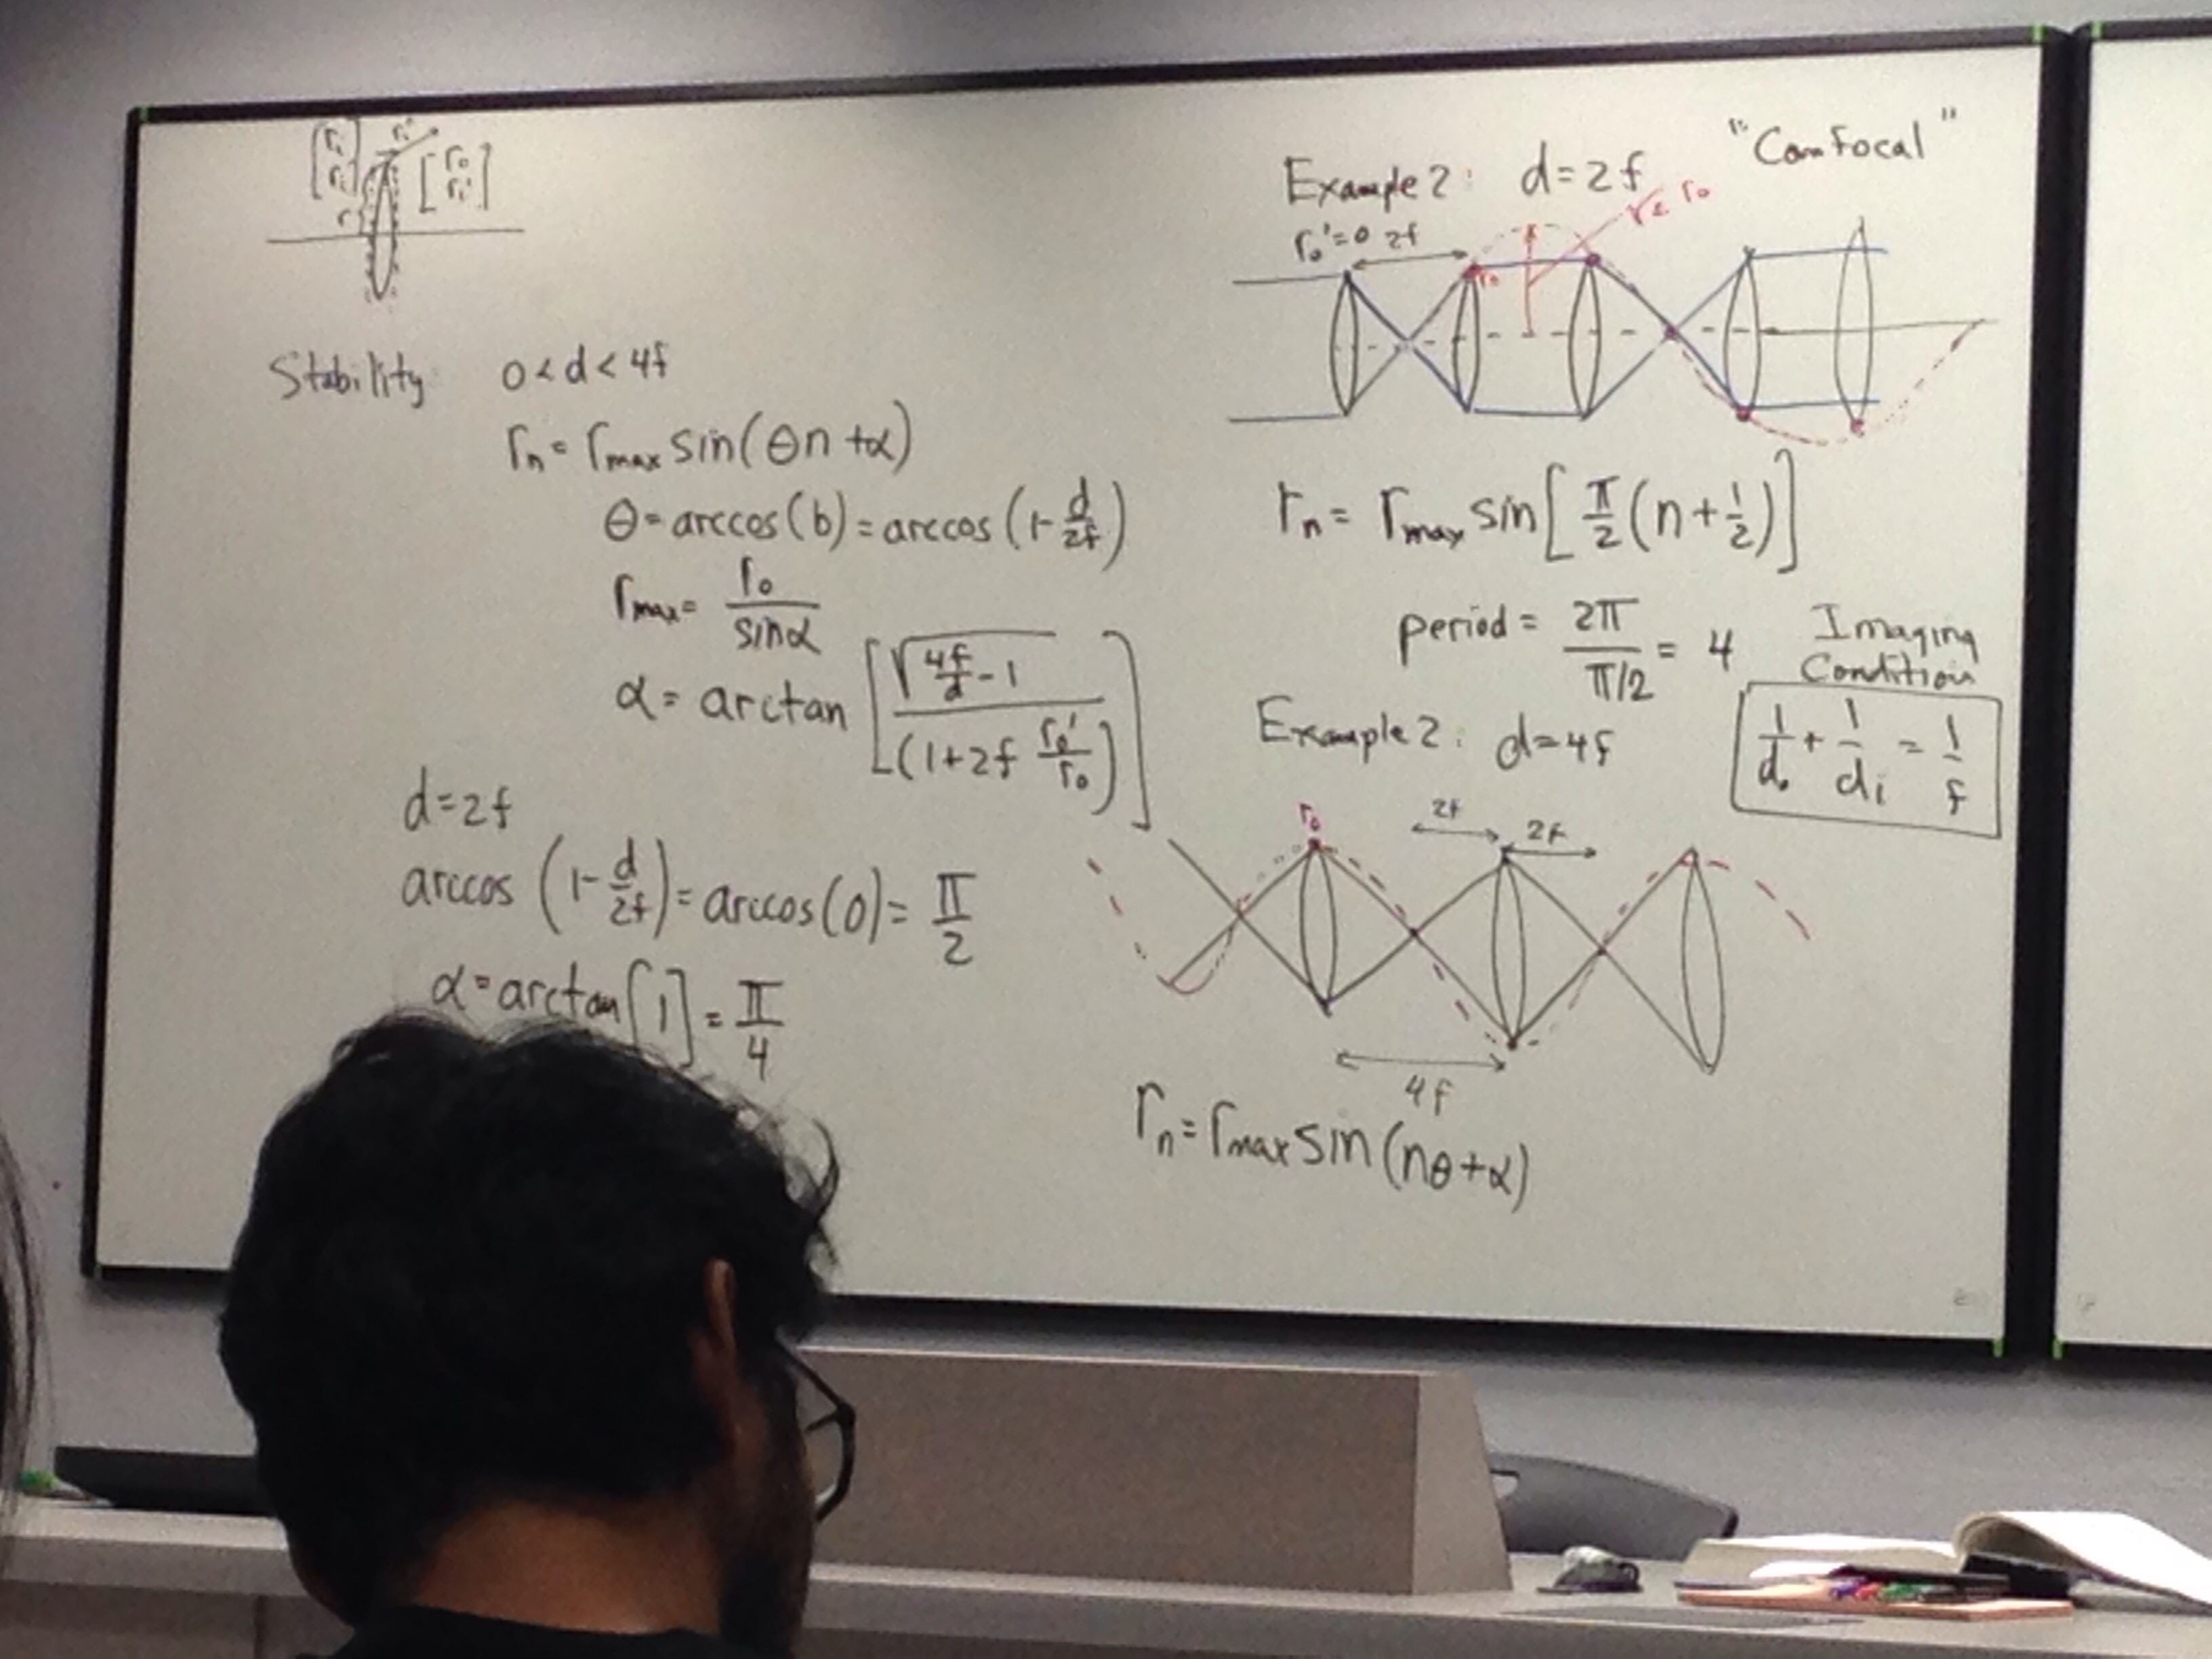 [ri ri'] ri' [r₀ ri']
r
Stability 0 < d < 4f
rₙ = r_max sin(θn + α)
θ = arccos(b) = arccos(1 - d/2f)
r_max = r₀/sinα
α = arctan [√(4f/d - 1) / (1 + 2f r₀'/r₀)]
d = 2f
arccos (1 - d/2f) = arccos(0) = π/2
α = arctan[1] = π/4
Example 2: d = 2f "Confocal"
r₀' = 0 2f r₀
r₀
rₙ = r_max sin[π/2 (n + 1/2)]
period = 2π/(π/2) = 4
Imaging
Condition
1/d₀ + 1/dᵢ = 1/f
Example 2: d = 4f
r₀ 2f 2f
4f
rₙ = r_max sin(nθ + α)